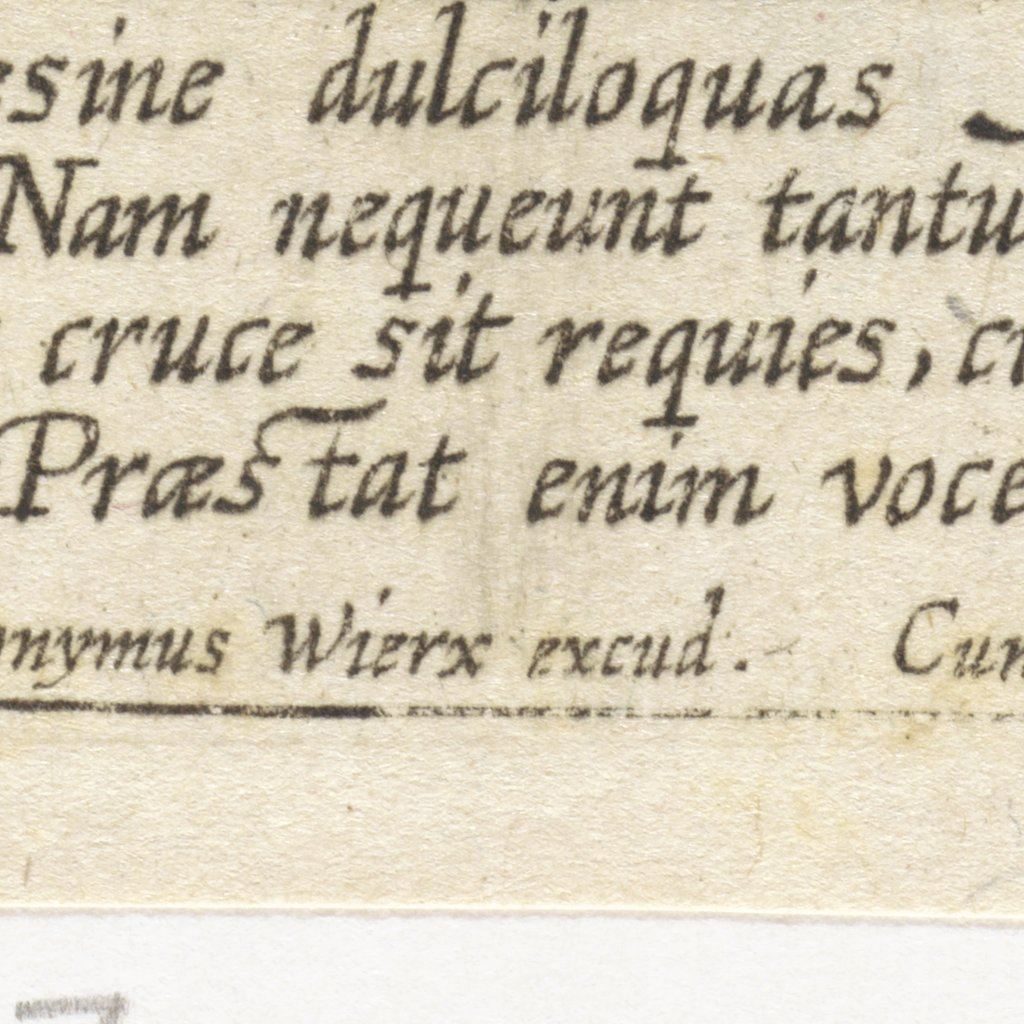 esine dulciloquas
Nam nequeunt tantu
cruce sit requies, cu
Præstat enim voce
onymus Wierx excud. Cum
7